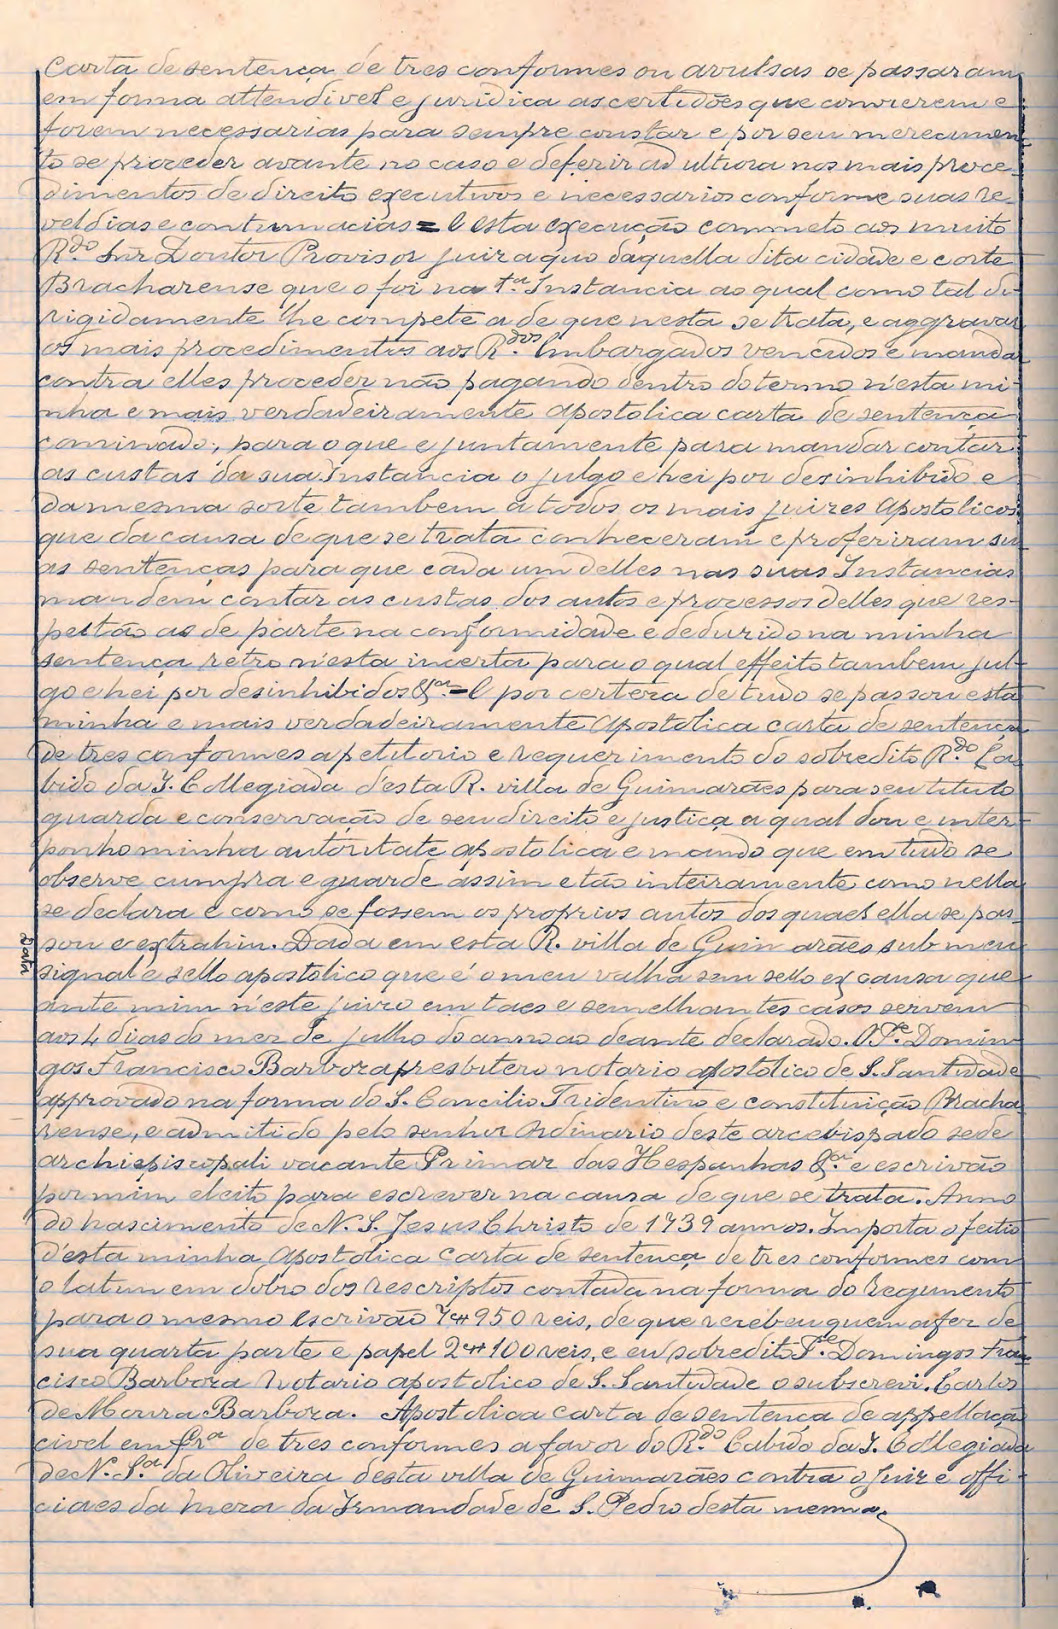 Carta de sentença de tres conformes ou avulsas se passaram
em forma attendivel e juridica as certidões que convierem e
forem necessarias para sempre constar e por seu merecimen-
to se proceder avante no caso e deferir ad ultiora nos mais proce-
dimentos de direito executivos e necessarios conforme suas re-
veldias e contumacias = E esta execução commeto aos muito
R.do Snr Doutor Provisor juiz a quo d'aquella dita cidade e corte
Bracharense que o foi na 1.a Instancia ao qual como tal di-
rigidamente lhe compete a de que nesta se trata, e aggravar
os mais procedimentos aos R.dos Embargados vencidos e mandar
contra elles proceder não pagando dentro do termo n'esta mi-
nha e mais verdadeiramente apostolica carta de sentença
cominado; para o que e juntamente para mandar contar
as custas da sua Instancia o julgo e hei por desinhibido e
da mesma sorte tambem a todos os mais juizes apostolicos
que da causa de que se trata conheceram e proferiram su-
as sentenças para que cada um delles nas suas Instancias
mandem contar as custas dos autos e processos delles que res-
peitão as de parte na conformidade e deduzido na minha
sentença retro n'esta incerta para o qual effeito tambem jul-
go e hei por desinhibidos &.a = E por certeza de tudo se passou esta
minha e mais verdadeiramente apostolica carta de sentença
de tres conformes a petitorio e requerimento do sobredito R.do Ca-
bido da I. Collegiada d'esta R. villa de Guimarães para seu titulo
guarda e conservação de seu direito e justiça a qual dou e inter-
ponho minha autoritate apostolica e mando que em tudo se
observe cumpra e guarde assim e tão inteiramente como nella
se declara e como se fossem os proprios autos dos quaes ella se pas-
sou e extrahiu. Dada em esta R. villa de Guimarães sub meu
Data
signal e sello apostolico que é o meu valha sem sello ex causa que
ante mim n'este juizo em taes e semelhantes casos servem
aos 4 dias do mez de julho do anno ao deante declarado. O P.e Domin-
gos Francisco Barboza presbitero notario apostolico de S. Santidade
approvado na forma do S. Concilio Tridentino e constituição Bracha-
rense, e admitido pelo senhor Ordinario deste arcebispado sede
archiepiscopali vacante Primaz das Hespanhas &.a e escrivão
por mim eleito para escrever na causa de que se trata. Anno
do nascimento de N. S. Jesus Christo de 1739 annos. Importa o feitio
d'esta minha Apostolica carta de sentença de tres conformes com
o latim em dobro dos rescriptos contada na forma do regimento
para o mesmo escrivão 7#950 reis, de que recebeu quem a fez de
sua quarta parte e papel 2#100 reis, e eu sobredito P.e Domingos Fran-
cisco Barboza Notario apostolico de S. Santidade o subscrevi. Carlos
de Moura Barboza. Apostolica carta de sentença de appellação
civel em fr.a de tres conformes a favor do R.do Cabido da I. Collegiada
de N. S.a da Oliveira desta villa de Guimarães contra o Juiz e offi-
ciaes da meza da Irmandade de S. Pedro desta mesma